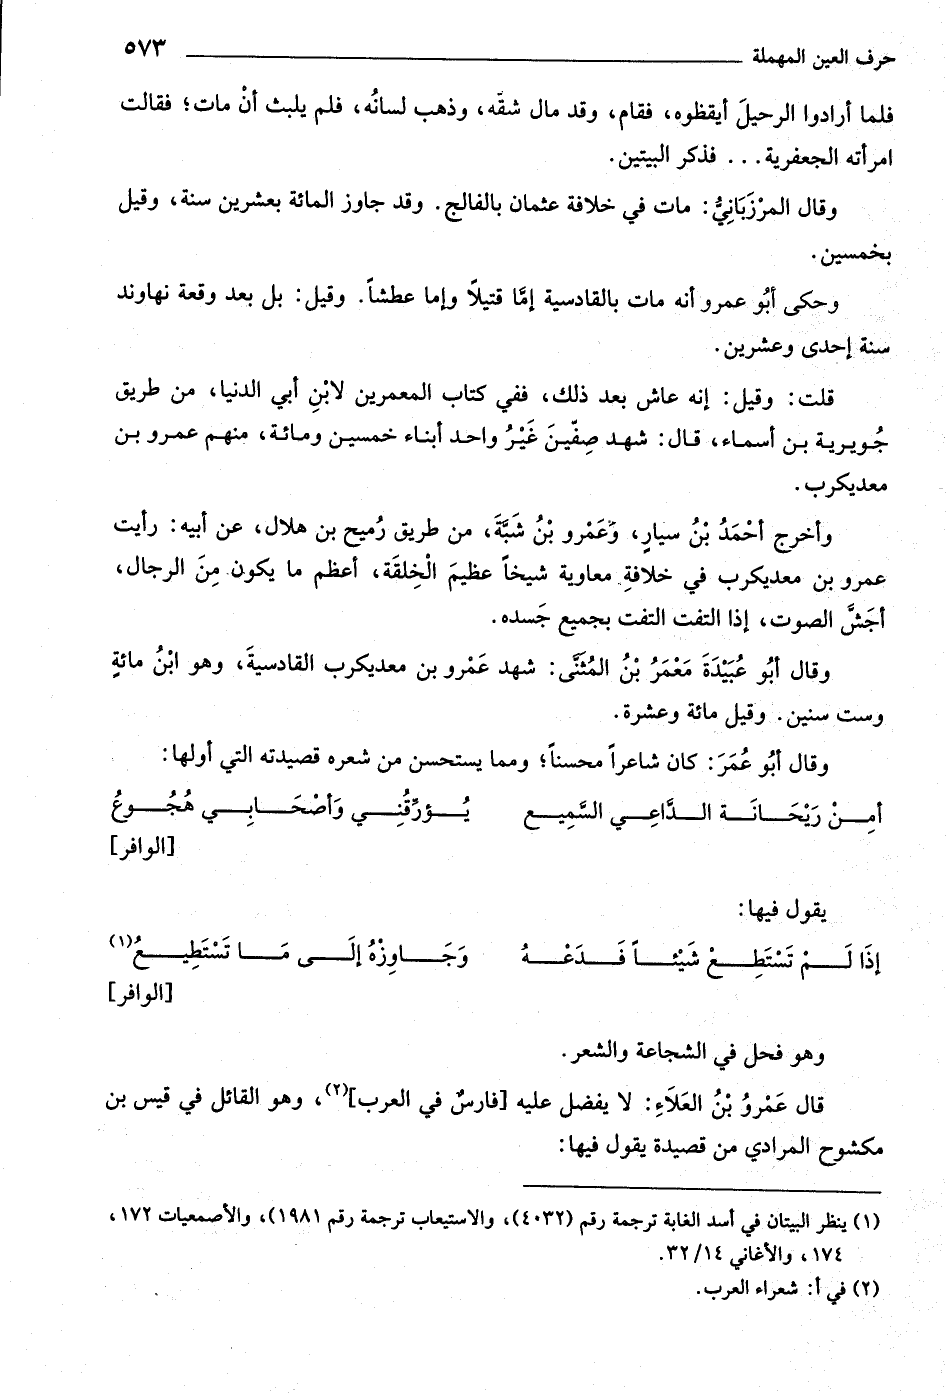 حرف العين المهملة ٥٧٣
فلما أرادوا الرحيلَ أيقظوه، فقام، وقد مال شقّه، وذهب لسانُه، فلم يلبث أنْ مات؛ فقالت
امرأته الجعفرية... فذكر البيتين.
وقال المرْزَبَانِيُّ: مات في خلافة عثمان بالفالج. وقد جاوز المائة بعشرين سنة، وقيل
بخمسين.
وحكى أبُو عمرو أنه مات بالقادسية إمَّا قتيلاً وإما عطشاً. وقيل: بل بعد وقعة نهاوند
سنة إحدى وعشرين.
قلت: وقيل: إنه عاش بعد ذلك، ففي كتاب المعمرين لابْنِ أبي الدنيا، من طريق
جُويرية بن أسماء، قال: شهد صِفّينَ غَيْرُ واحد أبناء خمسين ومائة، منهم عمرو بن
معديكرب.
وأخرج أحْمَدُ بْنُ سيارٍ، وَعَمْرو بْنُ شَبَّةَ، من طريق رُميح بن هلال، عن أبيه: رأيت
عمرو بن معديكرب في خلافةِ معاوية شيخاً عظيمَ الْخِلقَة، أعظم ما يكون مِنَ الرجال،
أجَشَّ الصوت، إذا التفت التفت بجميع جَسده.
وقال أبُو عُبَيْدَةَ مَعْمَرُ بْنُ المُثَنَّى: شهد عَمْرو بن معديكرب القادسيةَ، وهو ابْنُ مائةٍ
وست سنين. وقيل مائة وعشرة.
وقال أبُو عُمَرَ: كان شاعراً محسناً؛ ومما يستحسن من شعره قصيدته التي أولها:
أمِنْ رَيْحَانَة الدَّاعِي السَّمِيع يُؤرِّقُنِي وَأصْحَابِي هُجُوعُ
[الوافر]
يقول فيها:
إذَا لَمْ تَسْتَطِعْ شَيْئاً فَدَعْهُ وَجَاوِزْهُ إلَى مَا تَسْتَطِيعُ(١)
[الوافر]
وهو فحل في الشجاعة والشعر.
قال عَمْروُ بْنُ العَلَاءِ: لا يفضل عليه [فارسٌ في العرب](٢)، وهو القائل في قيس بن
مكشوح المرادي من قصيدة يقول فيها:
(١) ينظر البيتان في أسد الغابة ترجمة رقم (٤٠٣٢)، والاستيعاب ترجمة رقم ١٩٨١)، والأصمعيات ١٧٢،
١٧٤، والأغاني ٣٢/١٤.
(٢) في أ: شعراء العرب.